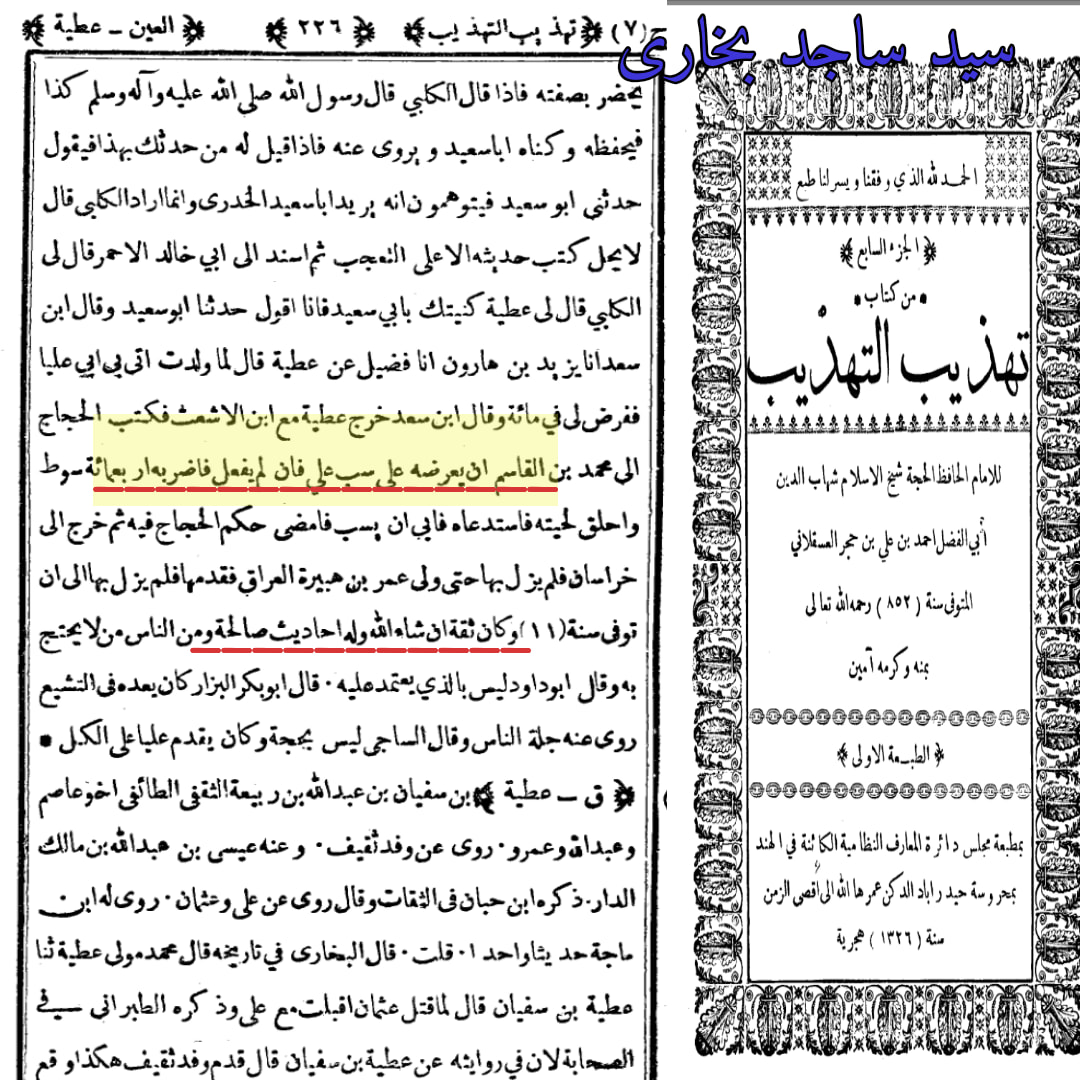 سيد ساجد بخاری
ج (٧) ﴿ تهذيب التهذيب ﴾ ﴿ ٢٢٦ ﴾ ﴿ العين ـ عطية ﴾
يحضر بصفته فاذا قال الكلبي قال رسول الله صلى الله عليه وآله وسلم كذا
فيحفظه وكناه اباسعيد و يروى عنه فاذاقيل له من حدثك بهذافيقول
حدثنى ابو سعيد فيتوهمون انه يريداباسعيد الخدرى وانما اراد الكلبى قال
لا يحل كتب حديثه الا على التعجب ثم اسند الى ابي خالد الاحمر قال لى
الكلبي قال لى عطية كنيتك بابي سعيد فانا اقول حدثنا ابوسعيد وقال ابن
سعد انا يزيد بن هارون انا فضيل عن عطية قال لما ولدت اتى بى ابي عليا
ففرض لى في مائة وقال ابن سعد خرج عطية مع ابن الاشعث فكتب الحجاج
الى محمد بن القاسم ان يعرضه على سب علي فان لم يفعل فاضربه اربعمائة سوط
واحلق لحيته فاستدعاه فابي ان يسب فامضى حكم الحجاج فيه ثم خرج الى
خراسان فلم يزل بها حتى ولى عمر بن هبيرة العراق فقدمها فلم يزل بها الى ان
توفى سنة (١١) وكان ثقة ان شاء الله وله احاديث صالحة ومن الناس من لا يحتج
به وقال ابوداود ليس بالذي يعتمد عليه ٠ قال ابوبكر البزار كان يعده فى التشيع
روى عنه جلة الناس وقال الساجى ليس بحجة وكان يقدم عليا على الكل •
﴿ ق ـ عطية ﴾ بن سفيان بن عبدالله بن ربيعة الثقفى الطائفى اخو عاصم
وعبدالله وعمرو ٠ روى عن وفد ثقيف ٠ وعنه عيسى بن عبدالله بن مالك
الدار ٠ ذكره ابن حبان فى الثقات وقال روى عن على وعثمان ٠ روى له ابن
ماجة حديثا واحدا ٠ قلت ٠ قال البخارى في تاريخه قال محمد مولى عطية ثنا
عطية بن سفيان قال لما قتل عثمان اقبلت مع على وذكره الطبرانى في
الصحابة لان في روايته عن عطية بن سفيان قال قدم وفد ثقيف هكذا وقع
الحمد لله الذي وفقنا ويسر لنا طبع
﴿ الجزء السابع ﴾
• من كتاب •
تهذيب التهذيب
للامام الحافظ الحجة شيخ الاسلام شهاب الدين
أبي الفضل احمد بن علي بن حجر العسقلاني
المتوفى سنة ( ٨٥٢ ) رحمه الله تعالى
بمنه وكرمه آمين
﴿ الطبعة الاولى ﴾
بمطبعة مجلس دائرة المعارف النظامية الكائنة في الهند
بمحروسة حيدراباد الدكن عمرها الله الى أقصى الزمن
سنة ( ١٣٢٦ ) هجرية